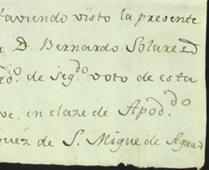 Haviendo visto la presente
a D. Bernardo Solares
ro. de seg.do voto de esta
ve, en claze de Apod.do
guéz de S. Migue de Agua